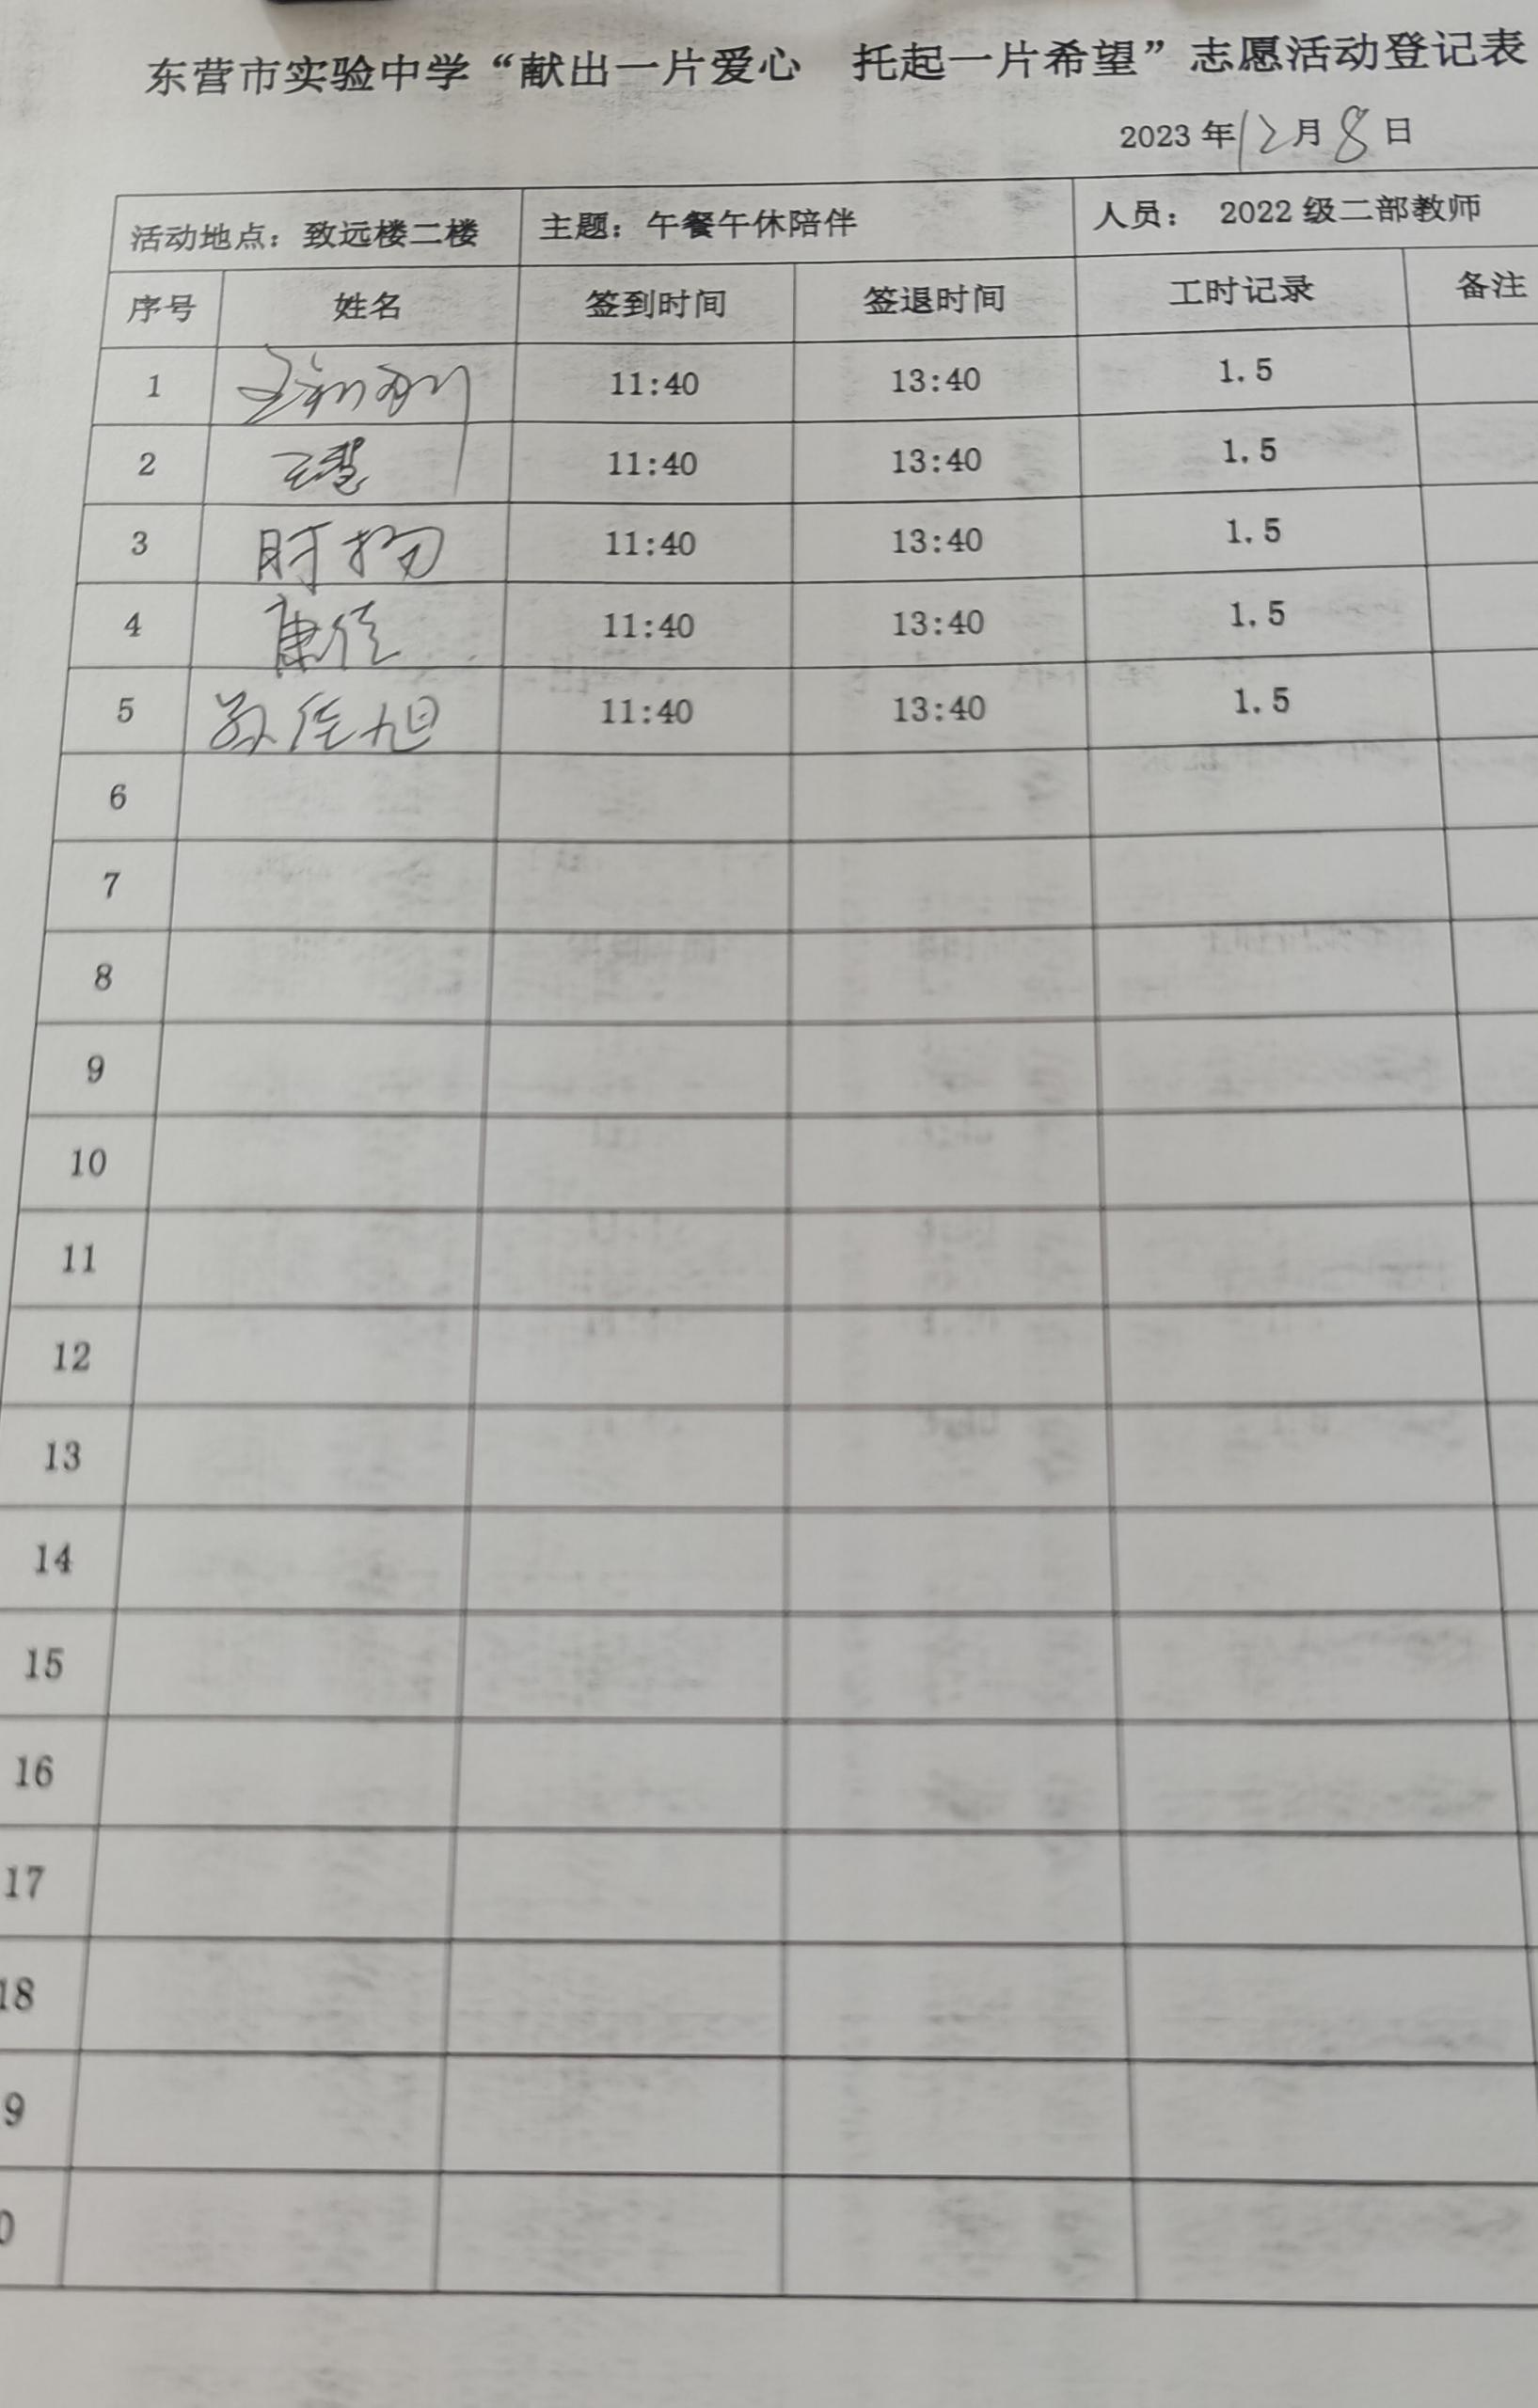 东营市实验中学“献出一片爱心 托起一片希望”志愿活动登记表
2023 年 12 月 8 日
活动地点：致远楼二楼 主题：午餐午休陪伴 人员： 2022 级二部教师
序号 姓名 签到时间 签退时间 工时记录 备注
1 11:40 13:40 1.5
2 11:40 13:40 1.5
3 11:40 13:40 1.5
4 康佳 11:40 13:40 1.5
5 佳旭 11:40 13:40 1.5
6
7
8
9
10
11
12
13
14
15
16
17
18
9
0